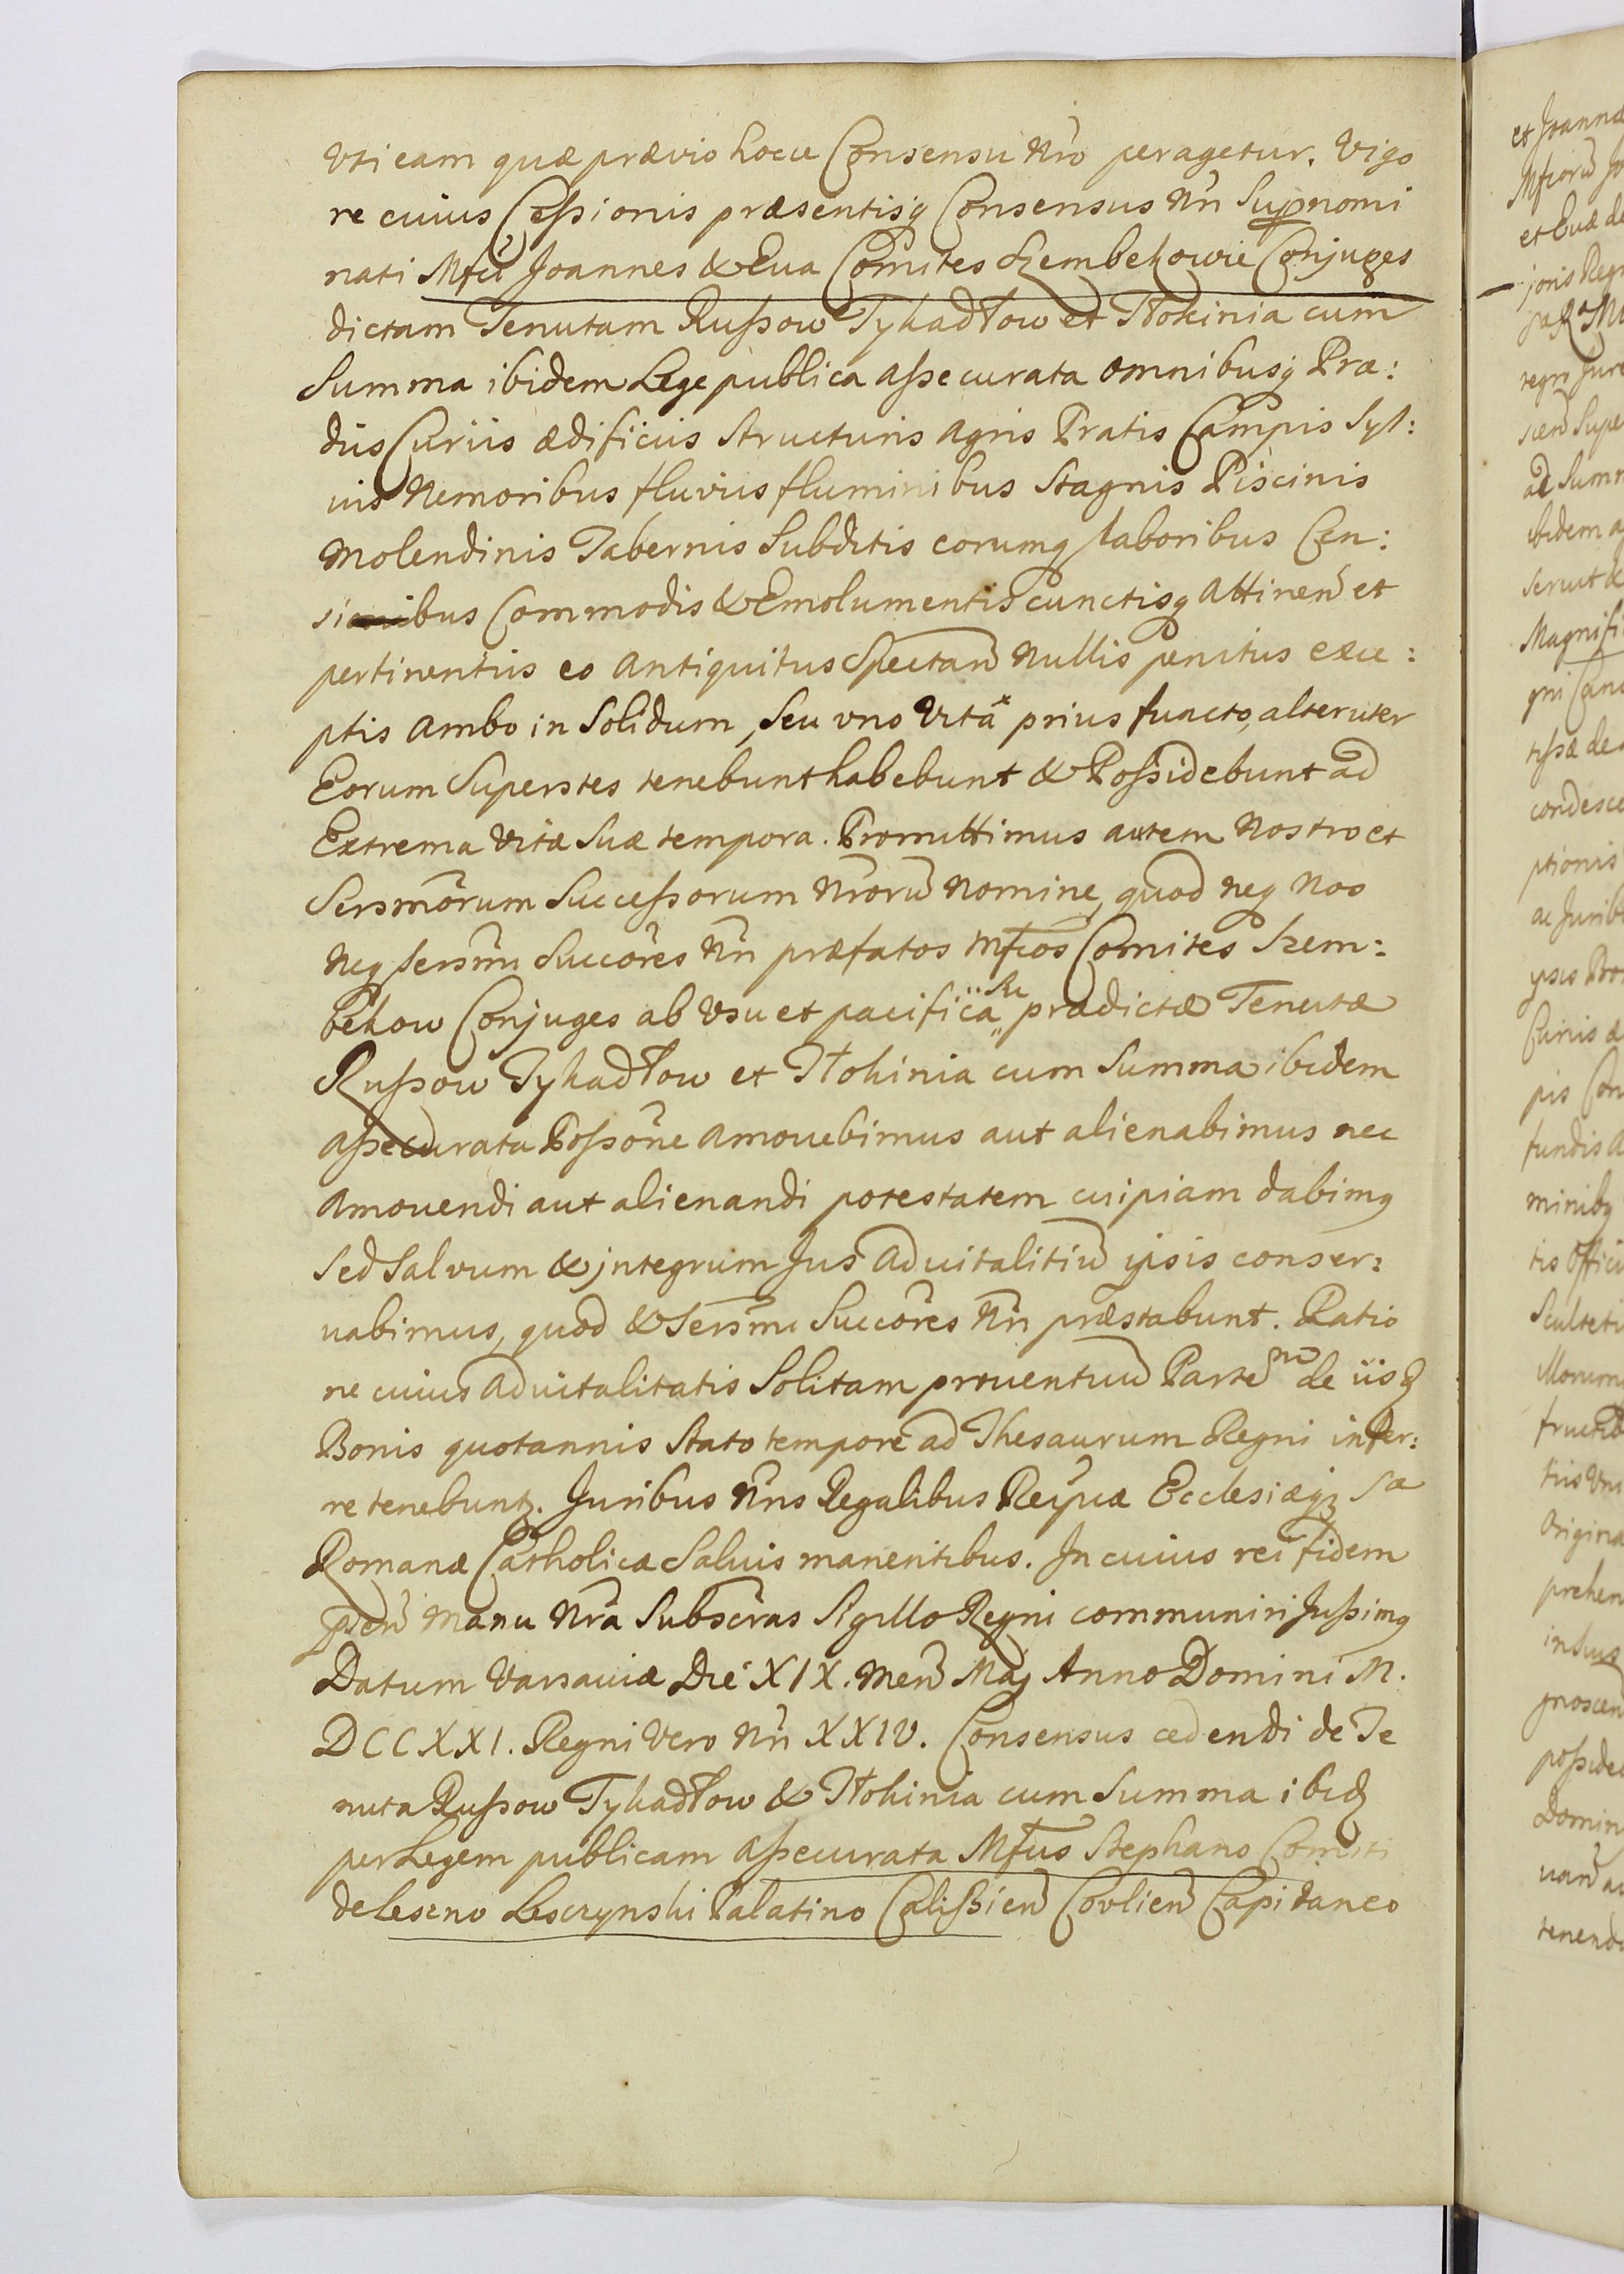 Vti eam quæ prævio hocce Consensu Nro̅ peragetur. Vigo
re cuius Cessionis præsentisq Consensus Nri̅ Suprnomi
nati Mfci̅ Joannes & Eua Comites Szembekowie Conjuges
dictam Tenutam Russow Tykadłow et Tłokinia cum
Summa ibidem Lege publica assecurata omnibusq Præ:
dijs Curiis ædificiis structuris agris Pratis Campis Syl:
uis Nemoribus fluviis fluminibus Stagnis Piscinis
Molendinis Tabernis Subditis eorumq laboribus Cen:
sibus Commodis & Emolumentis cunctisq attinen̅ et
pertinentiis eo antiquitus Spectan̅ nullis penitus exce:
ptis ambo in Solidum, seu vno Vita prius functo, alteruter
Eorum Superstes tenebunt habebunt & Possidebunt ad
Extrema Vitæ Suæ tempora. Promittimus autem Nostro et
Sersmo̅rum Successorum Nroru̅ nomine, quod neq Nos
neq sersmi̅ Succo̅res Nri̅ præfatos Mfcos̅ Comites Szem:
bekow Conjuges ab Vsu et pacifica prædictæ Tenutæ
Russow Tykadłow et Tłokinia cum Summa ibidem
assecurata Posso̅ne amouebimus aut alienabimus nec
amouendi aut alienandi potestatem cuipiam dabimq
Sed Salvum & jntegrum Jus aduitalitiu̅ ipsis conser:
uabimus, quod & Sersmi̅ Succo̅res Nri̅ præstabunt. Ratio
ne cuius aduitalitatis Solitam prouentuu̅ Parte̅ de iisd
Bonis quotannis Stato tempore ad Thesaurum Regni infer:
re tenebunt. Juribus Nri̅s Regalibus Reipcæ Ecclesiæq Sæ
Romanæ Catholicæ Saluis manentibus. In cuius rei fidem
præn̅ Manu Nra̅ Subscr̅as Sigillo Regni communiri Jussimq
Datum Varsauiæ Die XIX. Men̅ Maj Anno Domini M.
DCCXXI. Regni Vero Nri̅ XXIV. Consensus cedendi de Te
nuta Russow Tykadłow & Tłokinia cum Summa ibid
per Legem publicam assecurata Mfco̅ Stephano Comiti
de Leszno Lesczynski Palatino Calissien̅ Covlien̅ Capitaneo
et Joannæ
Mfcoru̅ Jo
et Euæ de
Magnifi
condesce
ptionis
ac Juribq
pis Con
fundis a
minibq
Sculteti
possidec
Domin
tenenda